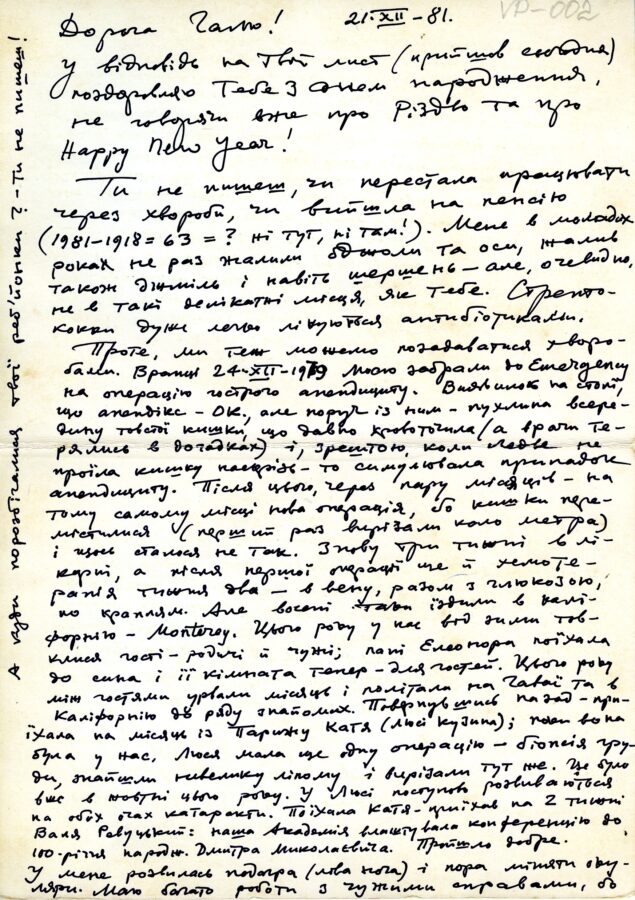 VP-002
Дорога Галю! 21·XII-81.
У відповідь на Твій лист (прийшов сьогодня)
поздоровляю Тебе з днем народження,
не говорячи вже про Різдво та про
Happy New Year!
Ти не пишеш, чи перестала працювати
через хвороби, чи вийшла на пенсію
(1981-1918=63=? ні тут, ні там!). Мене в молодох
роках не раз жалили бджоли та оси, жалив
також джміль і навіть шершень — але, очевидно,
не в такі делікатні місця, як Тебе. Стрепто-
кокки дуже легко лікуються антибіотиками.
Проте, ми теж можемо похвастатися хворо-
бами. Вранці 24-XII-1979 Люсю забрали до Emergency
на операцію гострого апендициту. Виявилок на столі,
що апендікс — ОК, але поруч із ним — пухлина всере-
дину товстої кишки, що давно кровоточила (а врачи те-
рялись в догадках) і, зрештою, коли ледве не
проїла кишку наскрізь — то симулювала припадок
апендициту. Після цього, через пару місяців — на
тому самому місці нова операція, бо кишки пере-
містилися (перший раз вирізали коло метра)
і щось сталося не так. Знову три тижні в лі-
карні, а після першої операції ще й хемоте-
рапія тижня два — в вену, разом з глюкозою,
по краплям. Але восени таки їздили в Калі-
форнію — Monterey. Цього року у нас від зими тов-
клися гості — родичі й чужі; пані Елеонора поїхала
до сина і її кімната тепер — для гостей. Цього року
між гостями урвали місяць і політали на Гаваї та в
Каліфорнію до ряду знайомих. Повернувшись назад — при-
їхала на місяць із Парижу Катя (Люсі кузина); поки вона
була у нас, Люся мала ще одну операцію — біопсія гру-
ди, знайшли невелику ліпому і вирізали тут же. Це було
вже в жовтні цього року. У Люсі поступово розвиваються
на обох очах катаракти. Поїхала Катя — приїхав на 2 тижні
Валя Ревуцький: наша Академія влаштувала конференцію до
100-річчя народж. Дмитра Миколаєвича. Пройшло добре.
У мене розвилась подагра (ліва нога) і пора міняти оку-
ляри. Маю богато роботи з чужими справами, бо
А куди порозбігалися твої ребʼйонки? — Ти не пишеш!